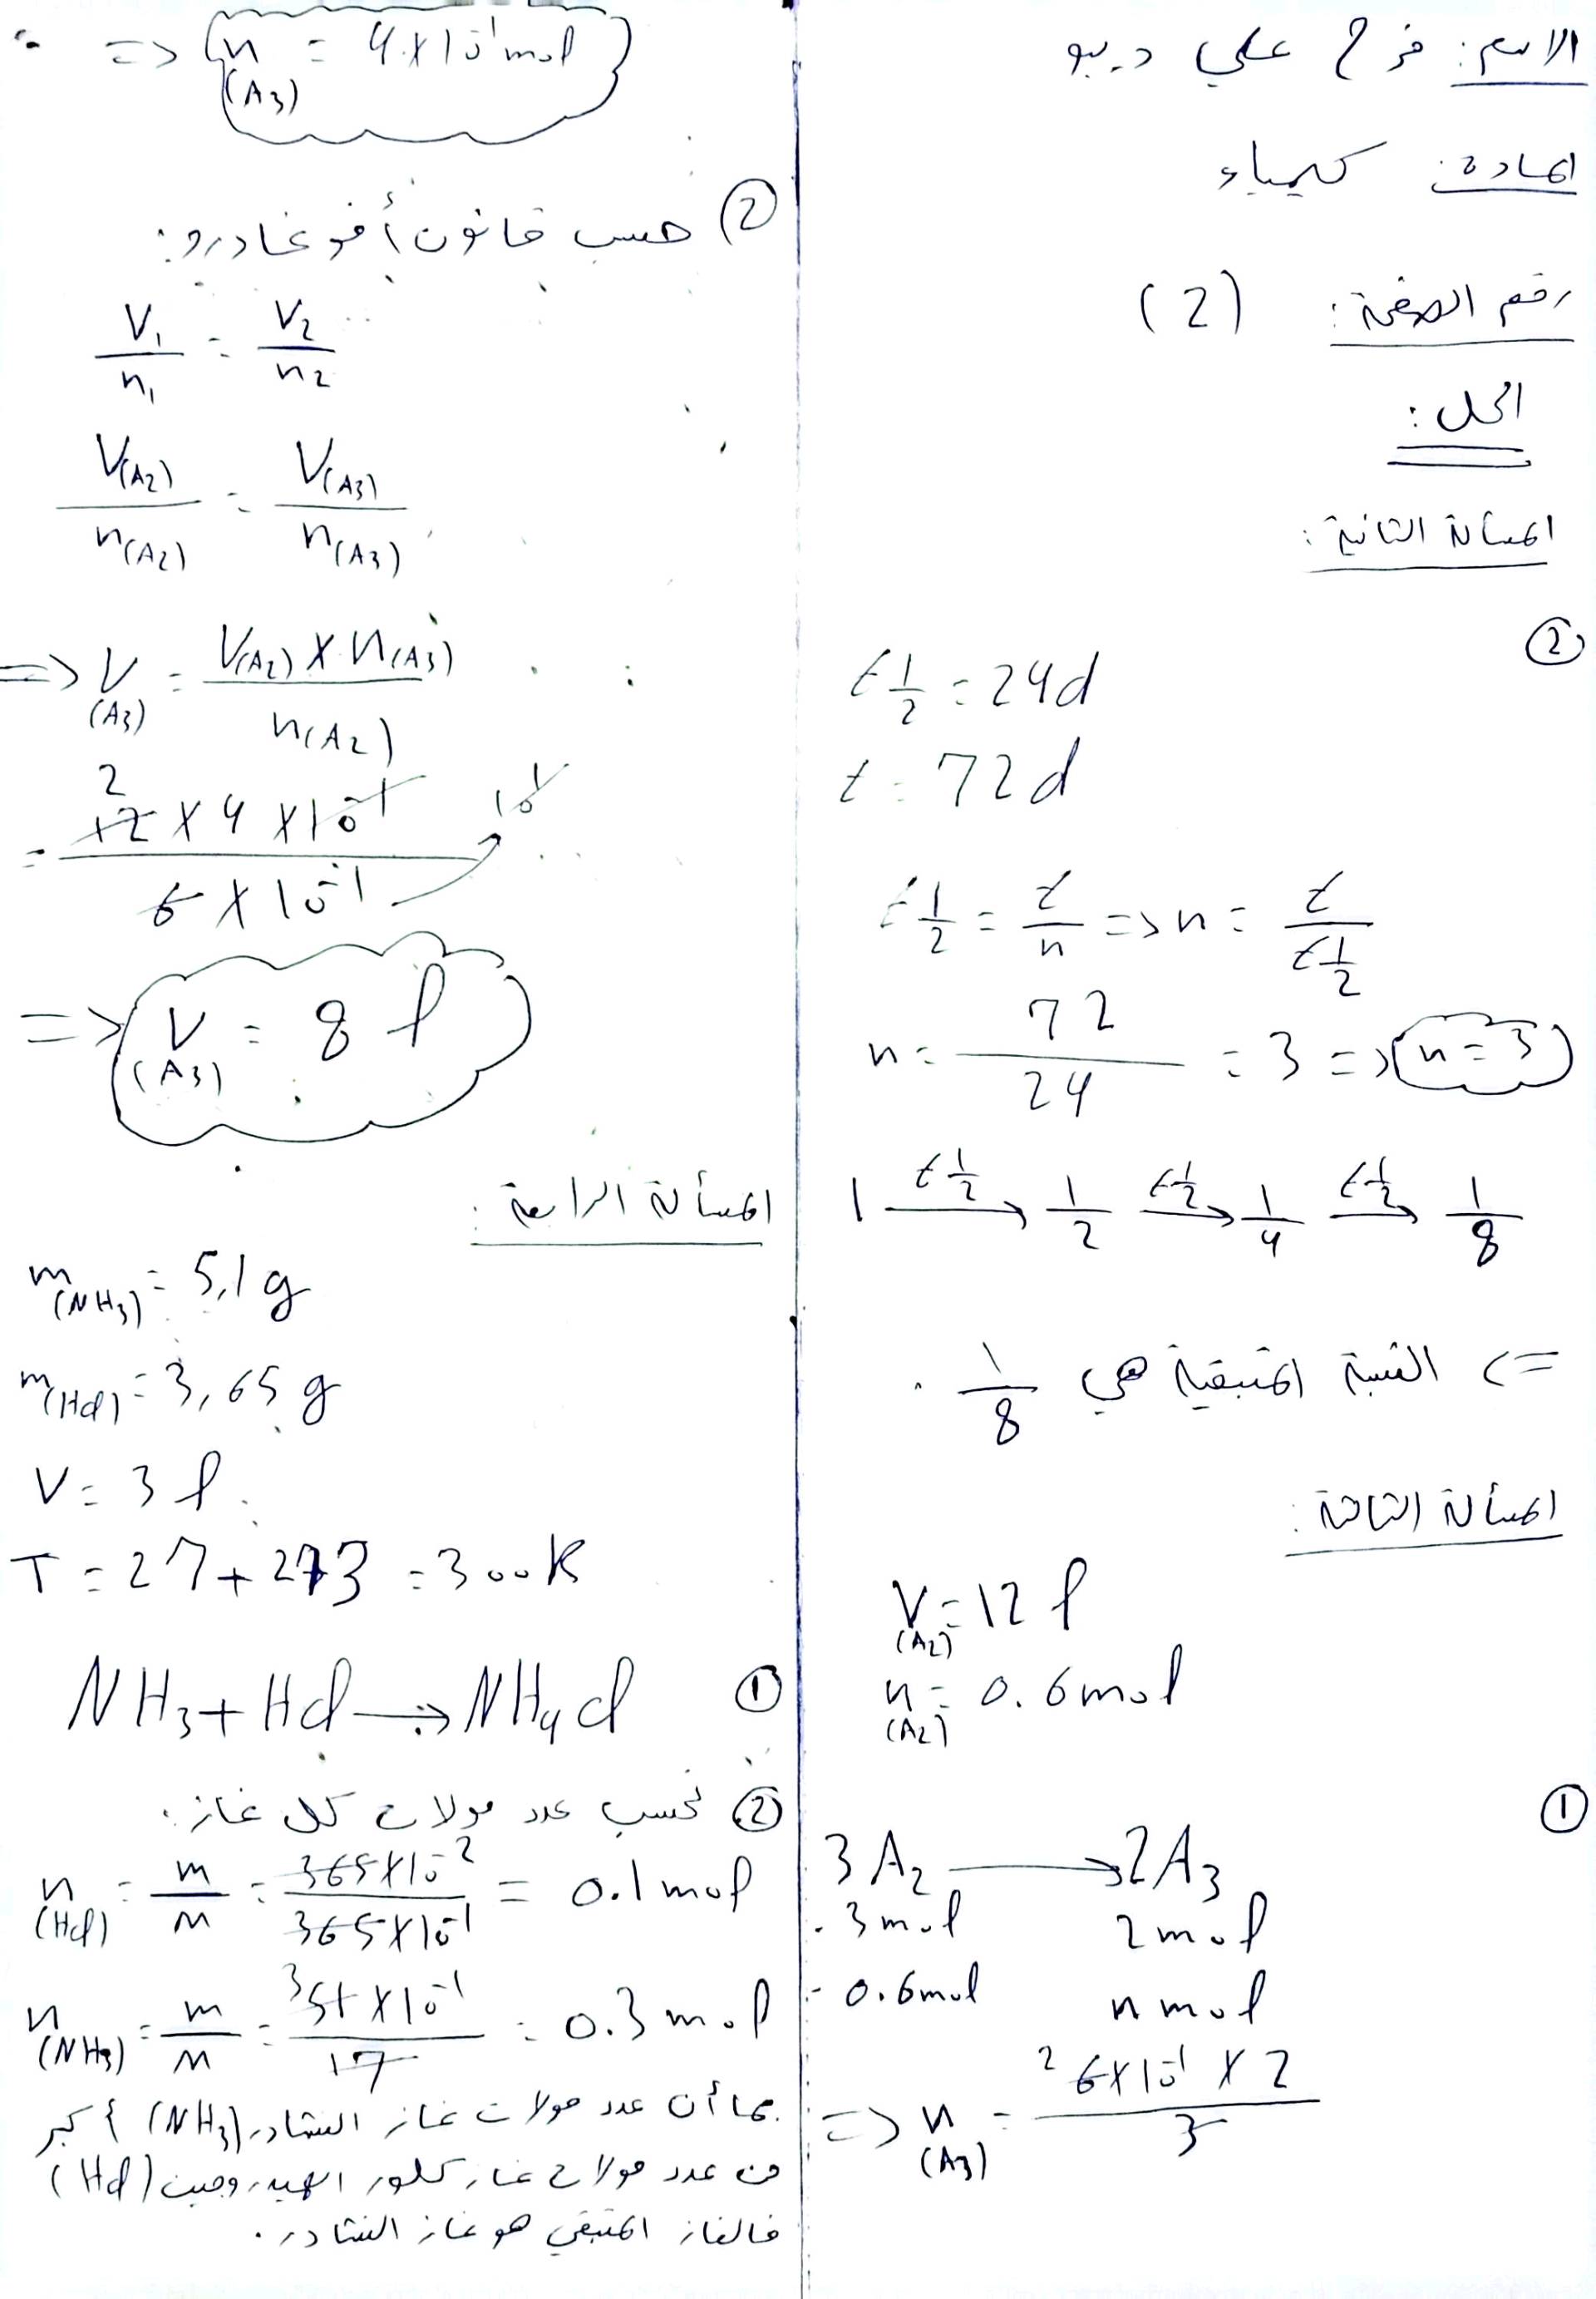 الاسم: فرح علي ديبو
المادة: كيمياء
رقم الصفحة: (2)
الحل:
المسألة الثانية:
②
t½ = 24d
t = 72d
t½ = t/n => n = t/t½
n = 72/24 = 3 => n = 3
1 —t½→ 1/2 —t½→ 1/4 —t½→ 1/8
=> النسبة المتبقية هي 1/8 .
المسألة الثالثة:
V(A2) = 12 l
n(A2) = 0.6 mol
①
3A2 → 2A3
3mol 2mol
0.6mol n mol
=> n(A3) = 2 6×10⁻¹ × 2 / 3
=> n(A3) = 4×10⁻¹ mol
② حسب قانون أفوغادرو:
V1/n1 = V2/n2
V(A2)/n(A2) = V(A3)/n(A3)
=> V(A3) = V(A2) × n(A3) / n(A2)
= 2 12 × 4 × 10⁻¹ / 6 × 10⁻¹ 10¹
=> V(A3) = 8 l
المسألة الرابعة:
m(NH3) = 5,1 g
m(Hcl) = 3,65 g
V = 3 l
T = 27 + 273 = 300K
① NH3 + Hcl → NH4cl
② نحسب عدد مولات كل غاز:
n(Hcl) = m/M = 365×10⁻² / 365×10⁻¹ = 0.1 mol
n(NH3) = m/M = 3 51×10⁻¹ / 17 = 0.3 mol
بما أن عدد مولات غاز النشادر (NH3) أكبر
من عدد مولات غاز كلور الهيدروجين (Hcl)
فالغاز المتبقي هو غاز النشادر.